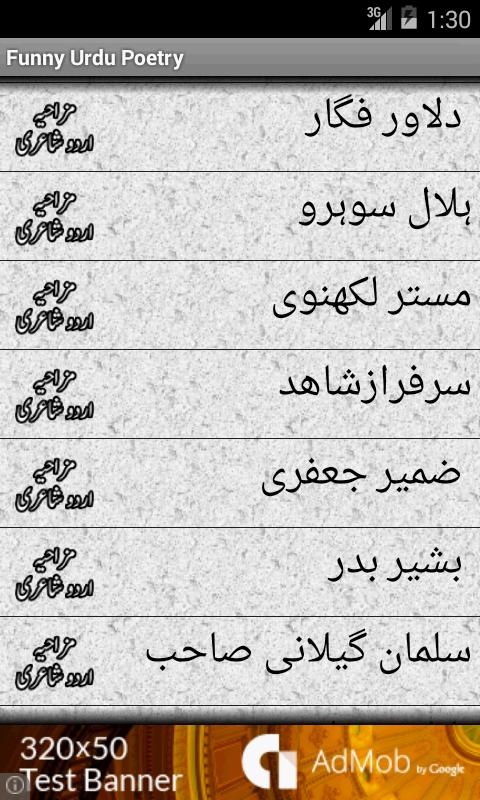 3G 1:30
Funny Urdu Poetry
دلاور فگار
مزاحیہ
اردو شاعری
ہلال سوہرو
مزاحیہ
اردو شاعری
مستر لکھنوی
مزاحیہ
اردو شاعری
سرفرازشاھد
مزاحیہ
اردو شاعری
ضمیر جعفری
مزاحیہ
اردو شاعری
بشیر بدر
مزاحیہ
اردو شاعری
سلمان گیلانی صاحب
مزاحیہ
اردو شاعری
320x50
Test Banner
AdMob by Google